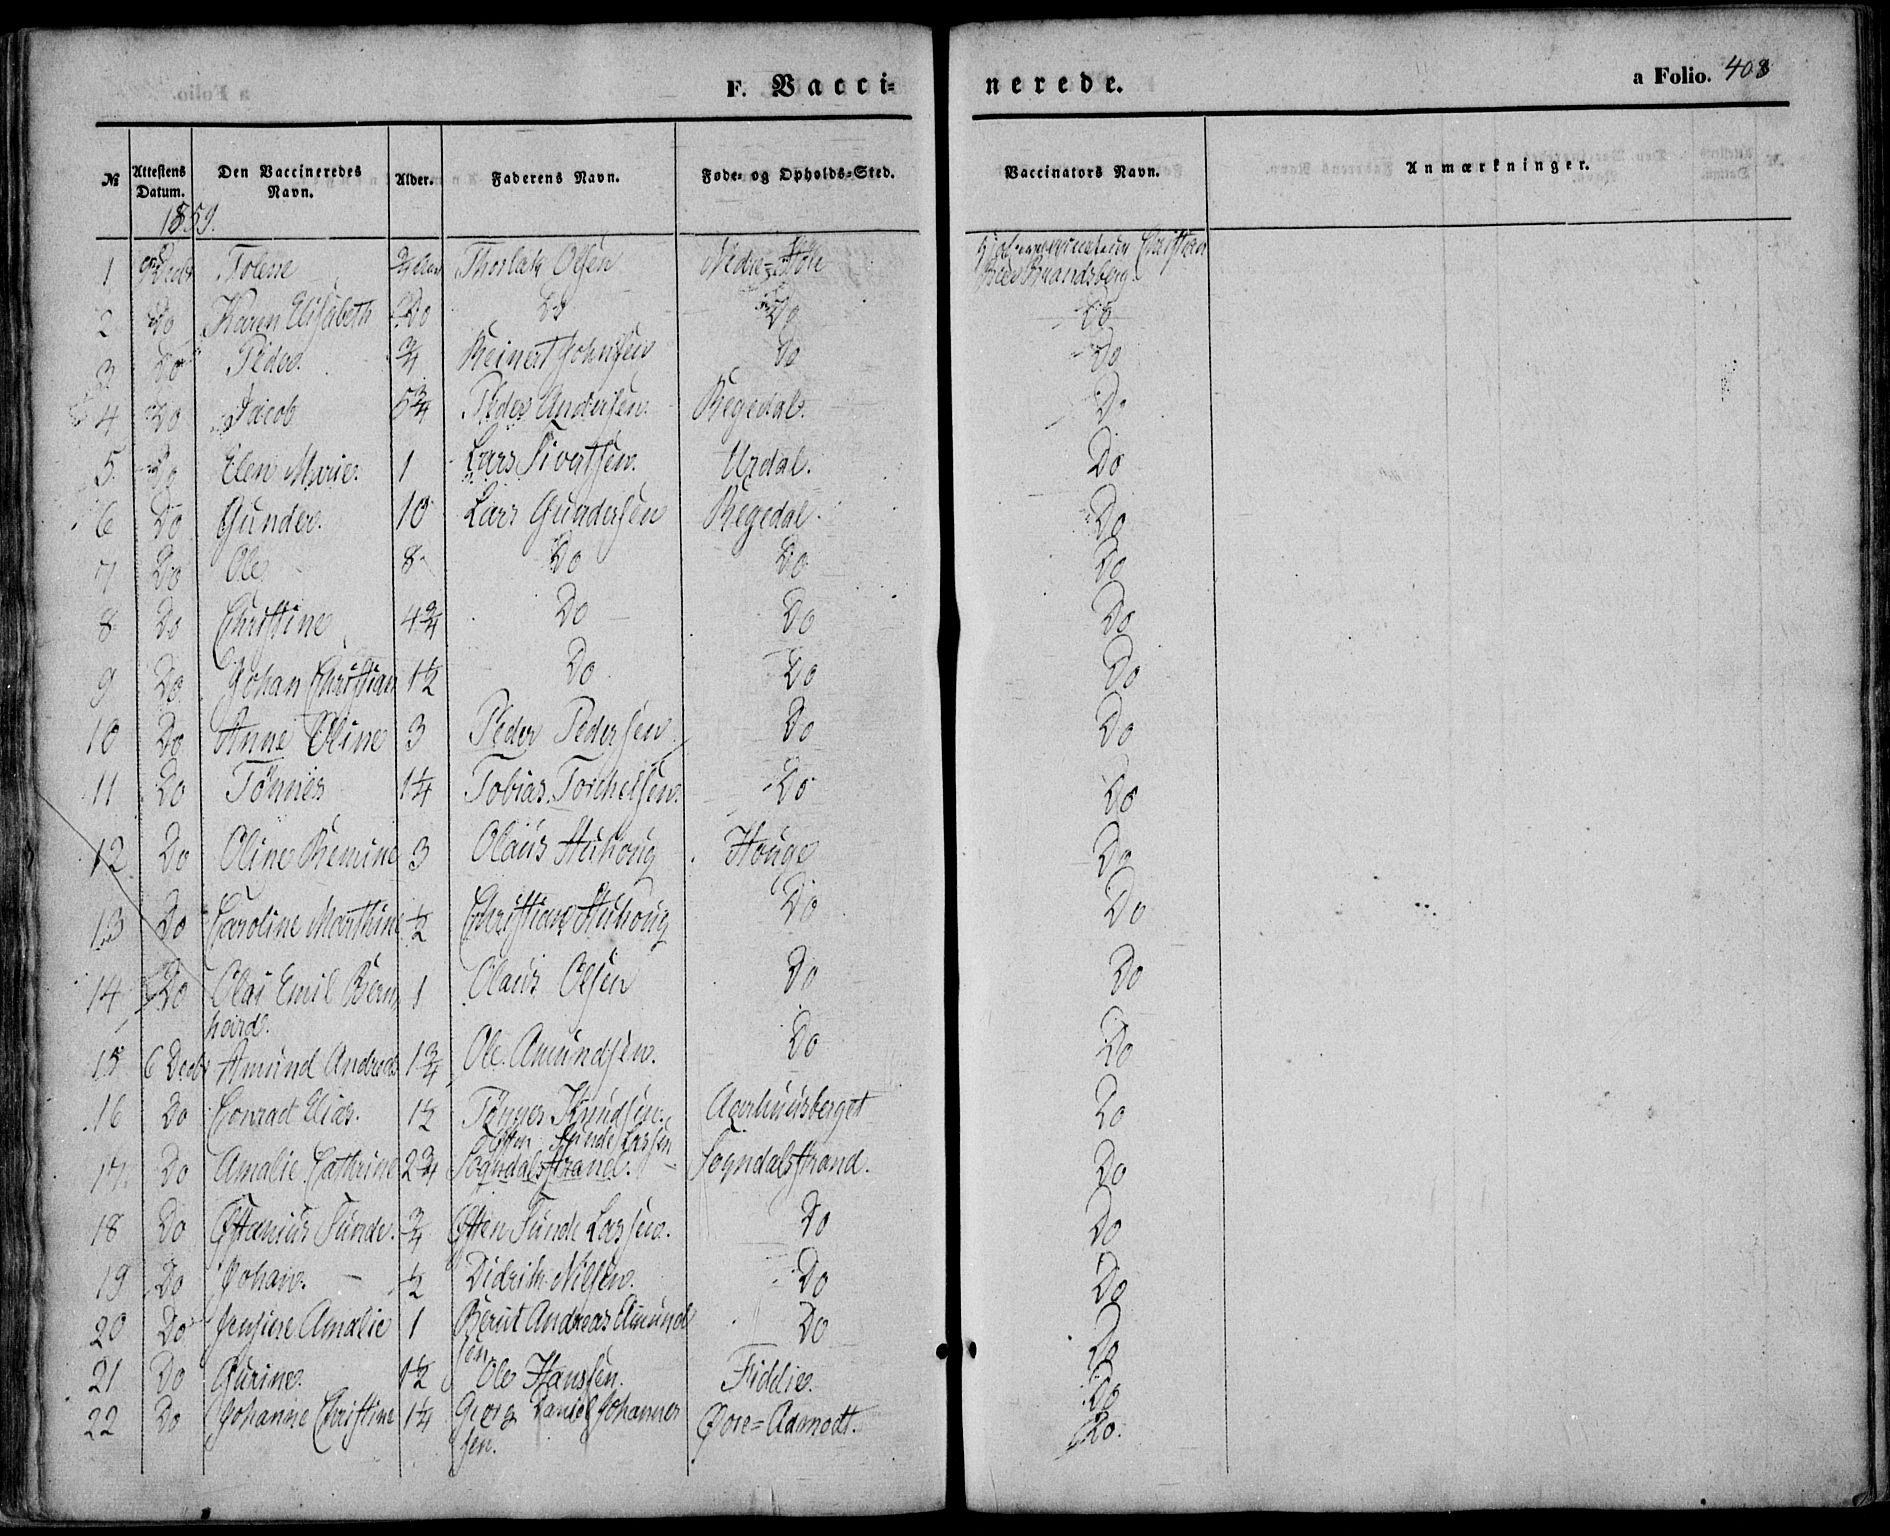 F. Vacci- nerede. a Folio. 408
№ Attestens Datum. Den Vaccineredes Navn. Alder. Faderens Navn. Føde- og Opholds-Sted. Vaccinators Navn. Anmærkninger.
1859.
1 Tolene 3/4 Thorlak Olsen Nedre= Christian
2 Do Karen Elisabeth Do Do Do Do
3 Do Peder. 3/4 Reinert Johnsen Do Do
4 Do Jacob 5 3/4 Peder Andersen. Regedal. Do
5. Do Elen Marie. 1 Lars Sivertsen. Urdal. Do
6 Do Gunder. 10 Lars Gundersen Regedal. Do
7 Do Ole 8 Do Do Do
8 Do Christine 4 3/4 Do Do Do
9 Do Johan Christian 1 1/2 Do Do Do
10 Do Anne Oline 3 Peder Pedersen Do Do
11 Do Tönnes 1 1/4 Tobias Torchelsen. Do Do
12 Do Oline Remine 3 Olaus Houge Do
13 Do Caroline Marthine 1/2 Christian Do Do
14 Do Olai Emil Bern 1 Olaus Olsen Do Do
hard.
15 6 Decbr Amund Andreas 1 3/4 Ole Amundsen. Do Do
16 Do Conrad Elias. 1 1/2 Tönnes Knudsen. Agerhuusberget Do
Østen Sunde Lassen
17. Do Amalie Cathrine 2 3/4 Sogndalstrand. Sogndalstrand. Do
18 Do Østanius Sunde. 3/4 Østen Sunde Lassen. Do Do
19 Do Johan. 1/2 Didrik Nilsen. Do Do
20 Do Jensine Amalie 1 Berut Andreas Amund Do Do
sen
21 Do Gurine. 1 1/2 Ole Hanssen. Fidelie. Do
22 Do Johanne Christine 1 1/4 Georg Daniel Johannes Øvre= Aamodt. Do.
sen.